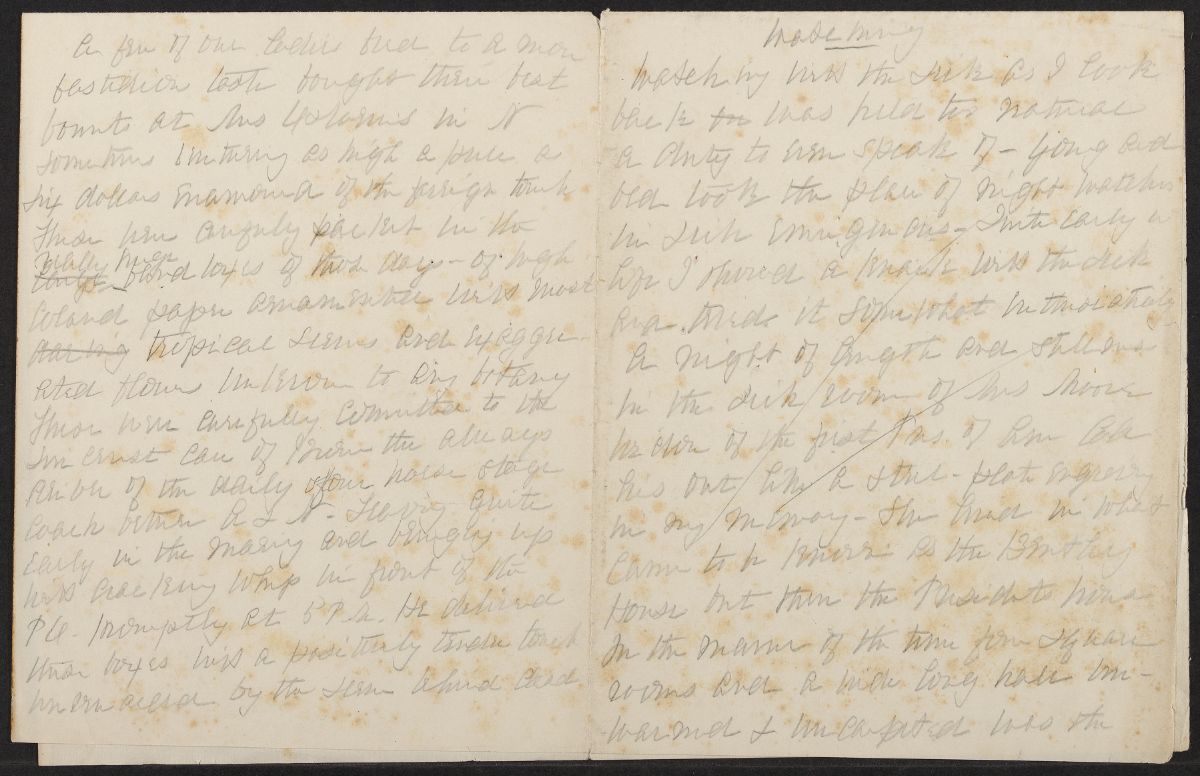 A few of our ladies bred to a more
fastidious taste bought their best
bonnets at Mrs in N
sometimes venturing as high a price as
six dollars enamoured of the foreign touch
These were carefully packed in the
band boxes of those days - of high
colored paper ornamented with most
daring tropical scenes and exagger-
ated flowers unknown to any botany
These were carefully committed to the
care of the always
driver of the daily four horse stage
coach between A & N - Leaving quite
early in the morning and bringing up
with cracking whip in front of the
P.O. promptly at 5 P.M. He delivered
these boxes with a positively tender touch
by the
Watching
Watching with the sick as I look
back was held too natural
a duty to even speak of - Young and
old took the place of night watchers
in sick emergencies - Quite early in
life I showed a knack with the sick
and tired it somewhat immoderately
A night of length and stillness
in the sick room of Mrs Moore
widow of the first Pres. of Am Col
lies out like a steel-plate engraving
in my memory - She lived in what
came to be known as the
House but then the Presidents house
In the manner of the time four square
rooms and a wide long hall un-
warmed & uncarpeted was the